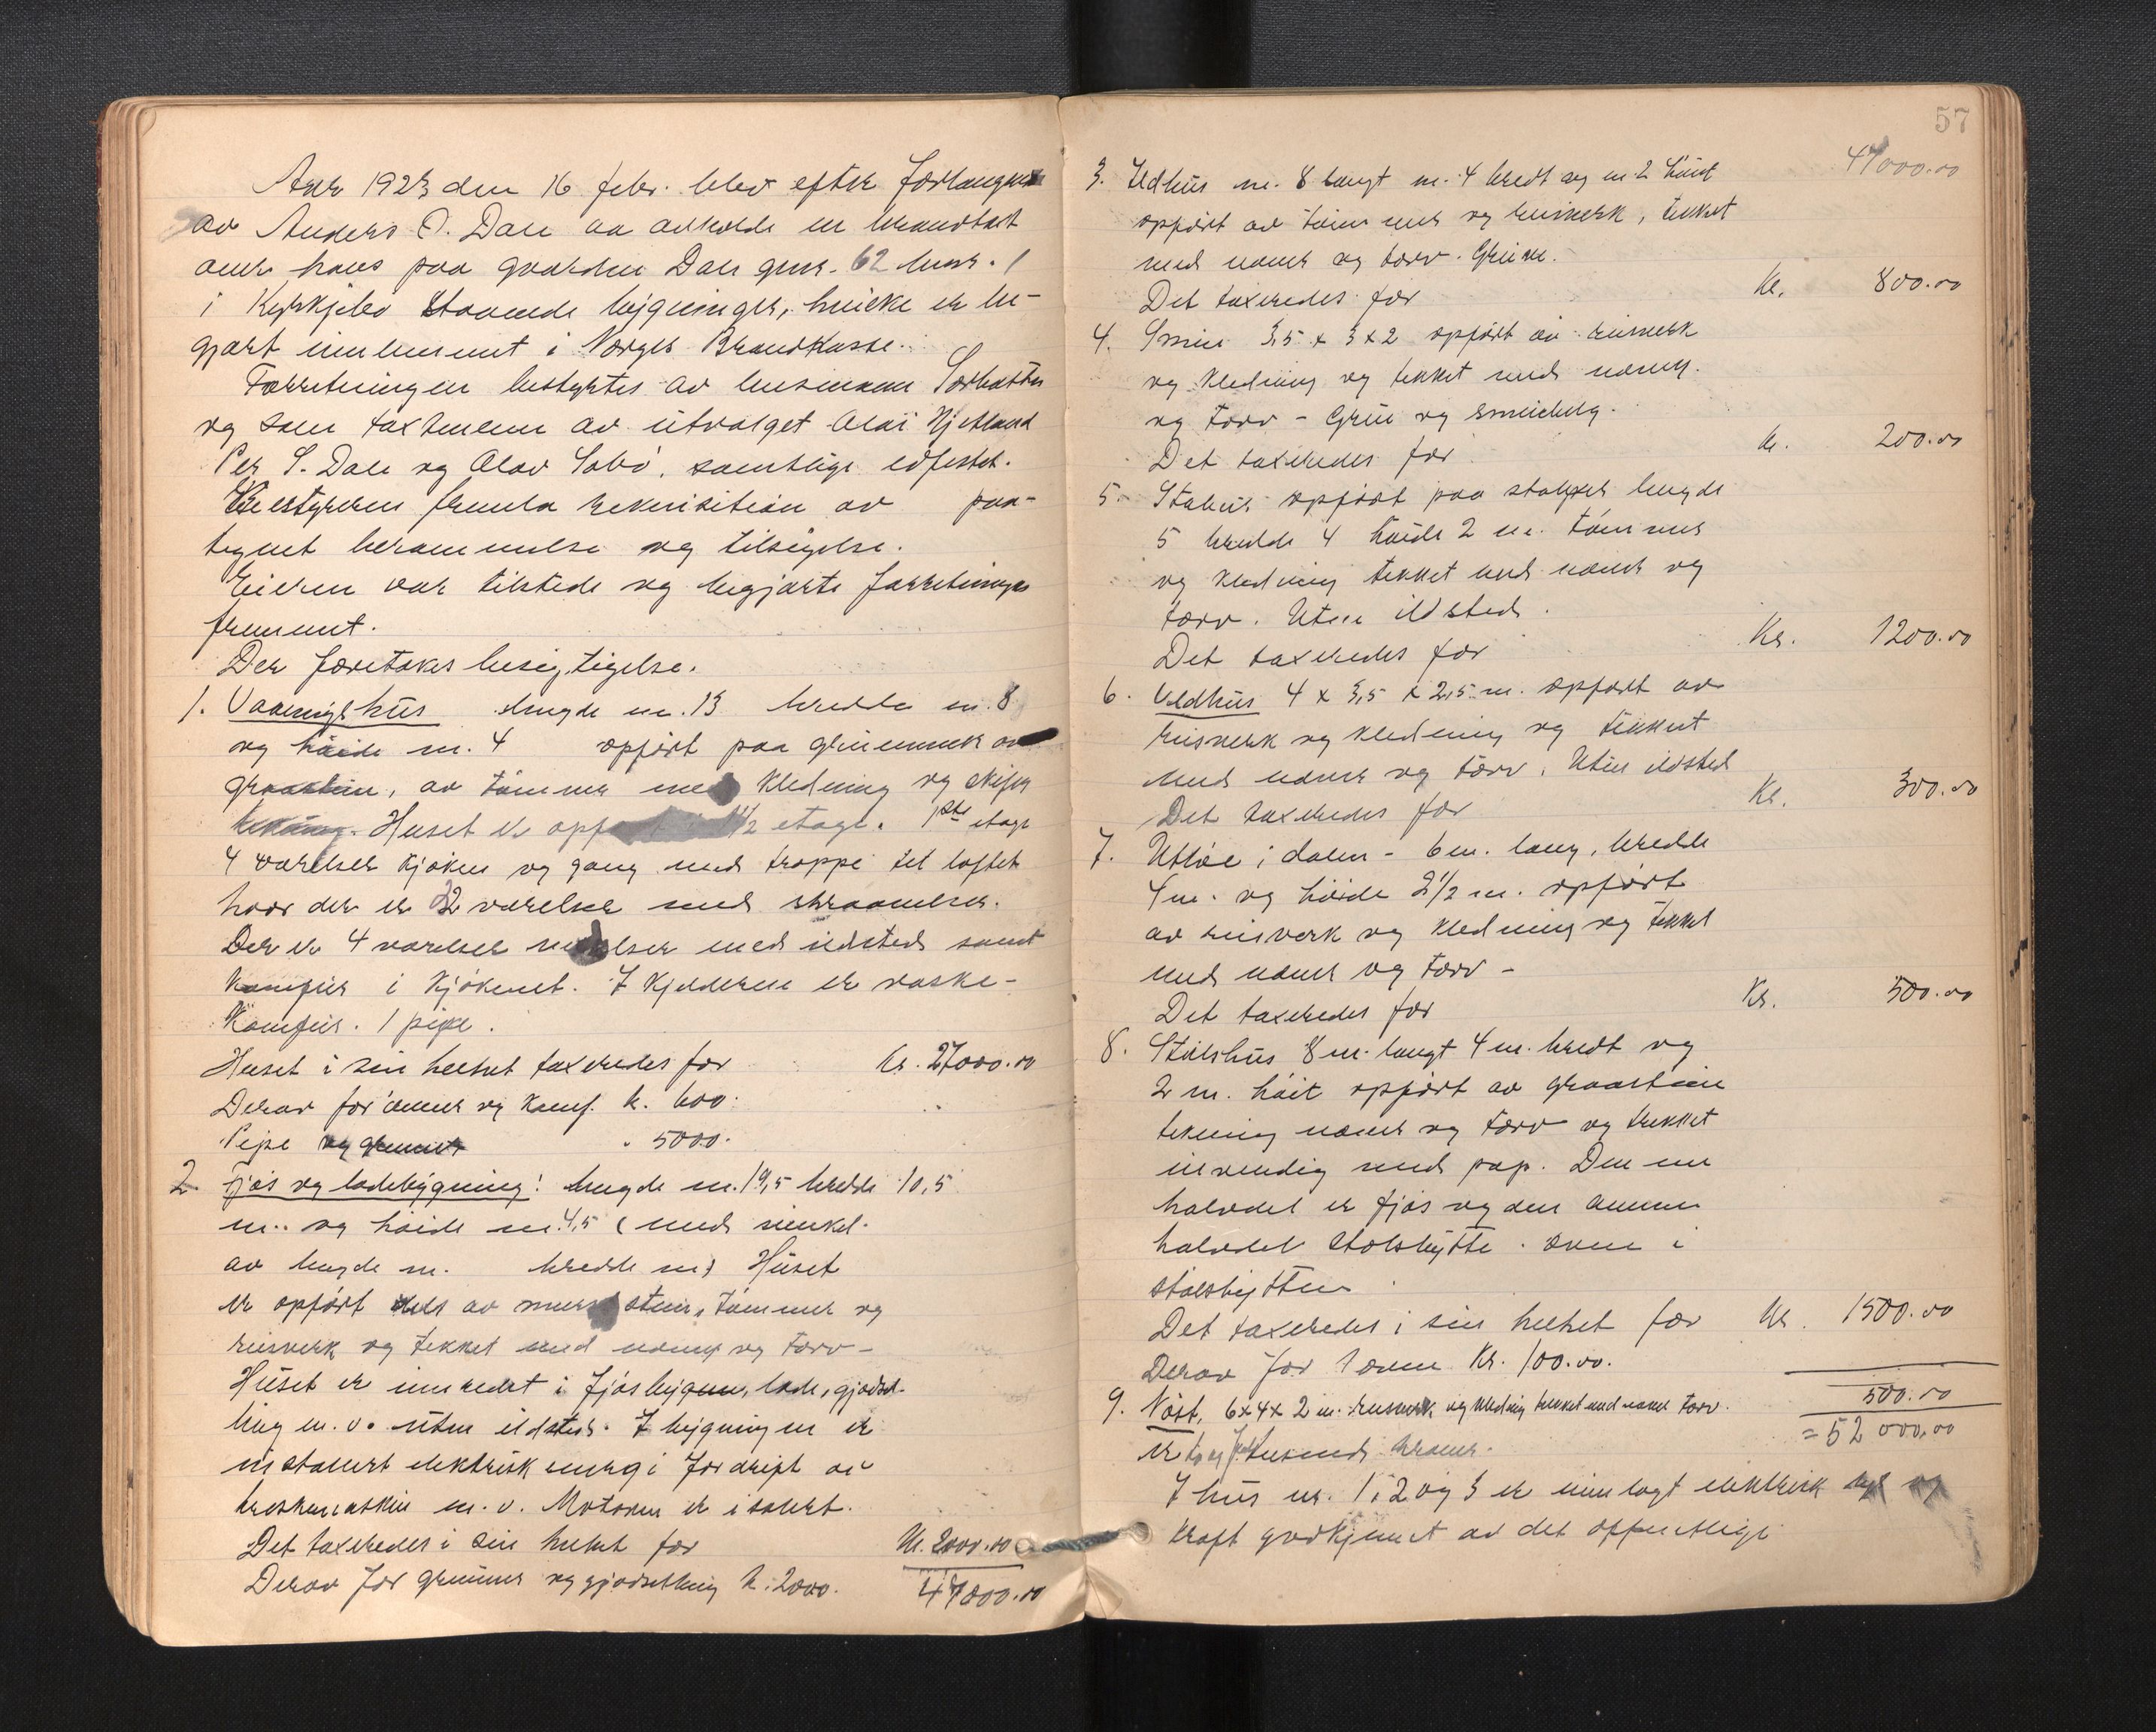 Aar 1923 den 16 febr. blev efter forlangende
av Anders O. Dale aa avholde en brandtakst
over hans paa gaarden Dale gnr. 62 bnr. 1
i Kyrkjebø staaende bygninger, hvilke er be-
gjært indlemmet i Norges Brandkasse.
Forretningen bestyrtes av lensmann
og som taxtmenn av utvalget Olai Hjetland
Per S. Dale og Olav Søbø, samtlige edfestet.
Bestyreren fremla rekvisition av paa-
tegnet berammelse og tilsigelse.
Eieren var tilstede og begjærte forretningen
fremmet.
Der foretokes besigtigelse.
1. Vaaningshus lengde m. 13 bredde m. 8
og høide m. 4 opført paa grunnmur av
graastein, av tømmer med kledning og skifer
tekning. Huset er opført 1 1/2 etage. 1ste etage
4 værelser kjøken og gang med trappe til loftet
hvor der er 2 værelser med skraamelser.
Der er 4 værelser med ildsted samt
komfur i kjøkenet. I kjelderen er vaske-
komfur. 1 pipe.
Huset i sin helhet taxeredes for Kr. 27000.00
Derav for ovner og komf. kr. 600.
Pipe og grunmur " 5000.
2. Fjøs og ladebygning: lengde m. 19,5 bredde 10,5
m. og høide m. 4,5 (med vinkel.
av lengde m. bredde m) Huset
er opført dels av mursten, tømmer og
reisverk og tekket med næver og torv -
Huset er innredet i fjøsbygn, lade, gjødsel-
ling m.v. uten ildsted. I bygningen er
installert elektrisk energi for drift av
treskemaskin m.v. Motoren er isolert.
Det taxeredes i sin helhet for Kr. 2000.00
Derav for grunmur og gjødselling kr. 2000. 47000.00
57
47000.00
3. Eldhus m. 8 langt m. 4 bredt og m 2 høit
opført av tømmer og reisverk, tekket
med næver og torv. Gruve.
Det taxeredes for Kr. 800.00
4. Smie 3,5 x 3 x 2 opført av reisverk
og kledning og tekket med næver
og torv - Grue og smiebelg.
Det taxeredes for kr. 200.00
5. Stabur opført paa stolper lengde
5 bredde 4 høide 2 m. tømmer
og kledning tekket med næver og
torv. Uten ildsted.
Det taxeredes for Kr. 1200.00
6. Vedhus 4 x 3,5 x 2,5 m. opført av
reisverk og kledning og tekket
med næver og torv. Uten ildsted
Det taxeredes for Kr. 300.00
7. Utløe i dalen - 6 m. lang, bredde
4 m. og høide 2 1/2 m. opført
av reisverk og kledning og tekket
med næver og torv -
Det taxeredes for Kr. 500.00
8. Stølshus 8 m. langt 4 m. bredt og
2 m. høit opført av graastein
tekning næver og torv og trekket
invendig med pap. Den ene
halvdel er fjøs og den annen
halvdel stølshytte. Ovn i
stølshytten
Det taxeredes i sin helhet for Kr. 1500.00
Derav for 1 ovn Kr. 100.00.
9. Nøst, 6x4x2 m. reisverk og kledning tekket med næver torv. 500.00
er to og tusend kroner. = 52000.00
I hus nr. 1, 2 og 3 er innlagt elektrisk lys og
kraft godkjennt av det offentlige